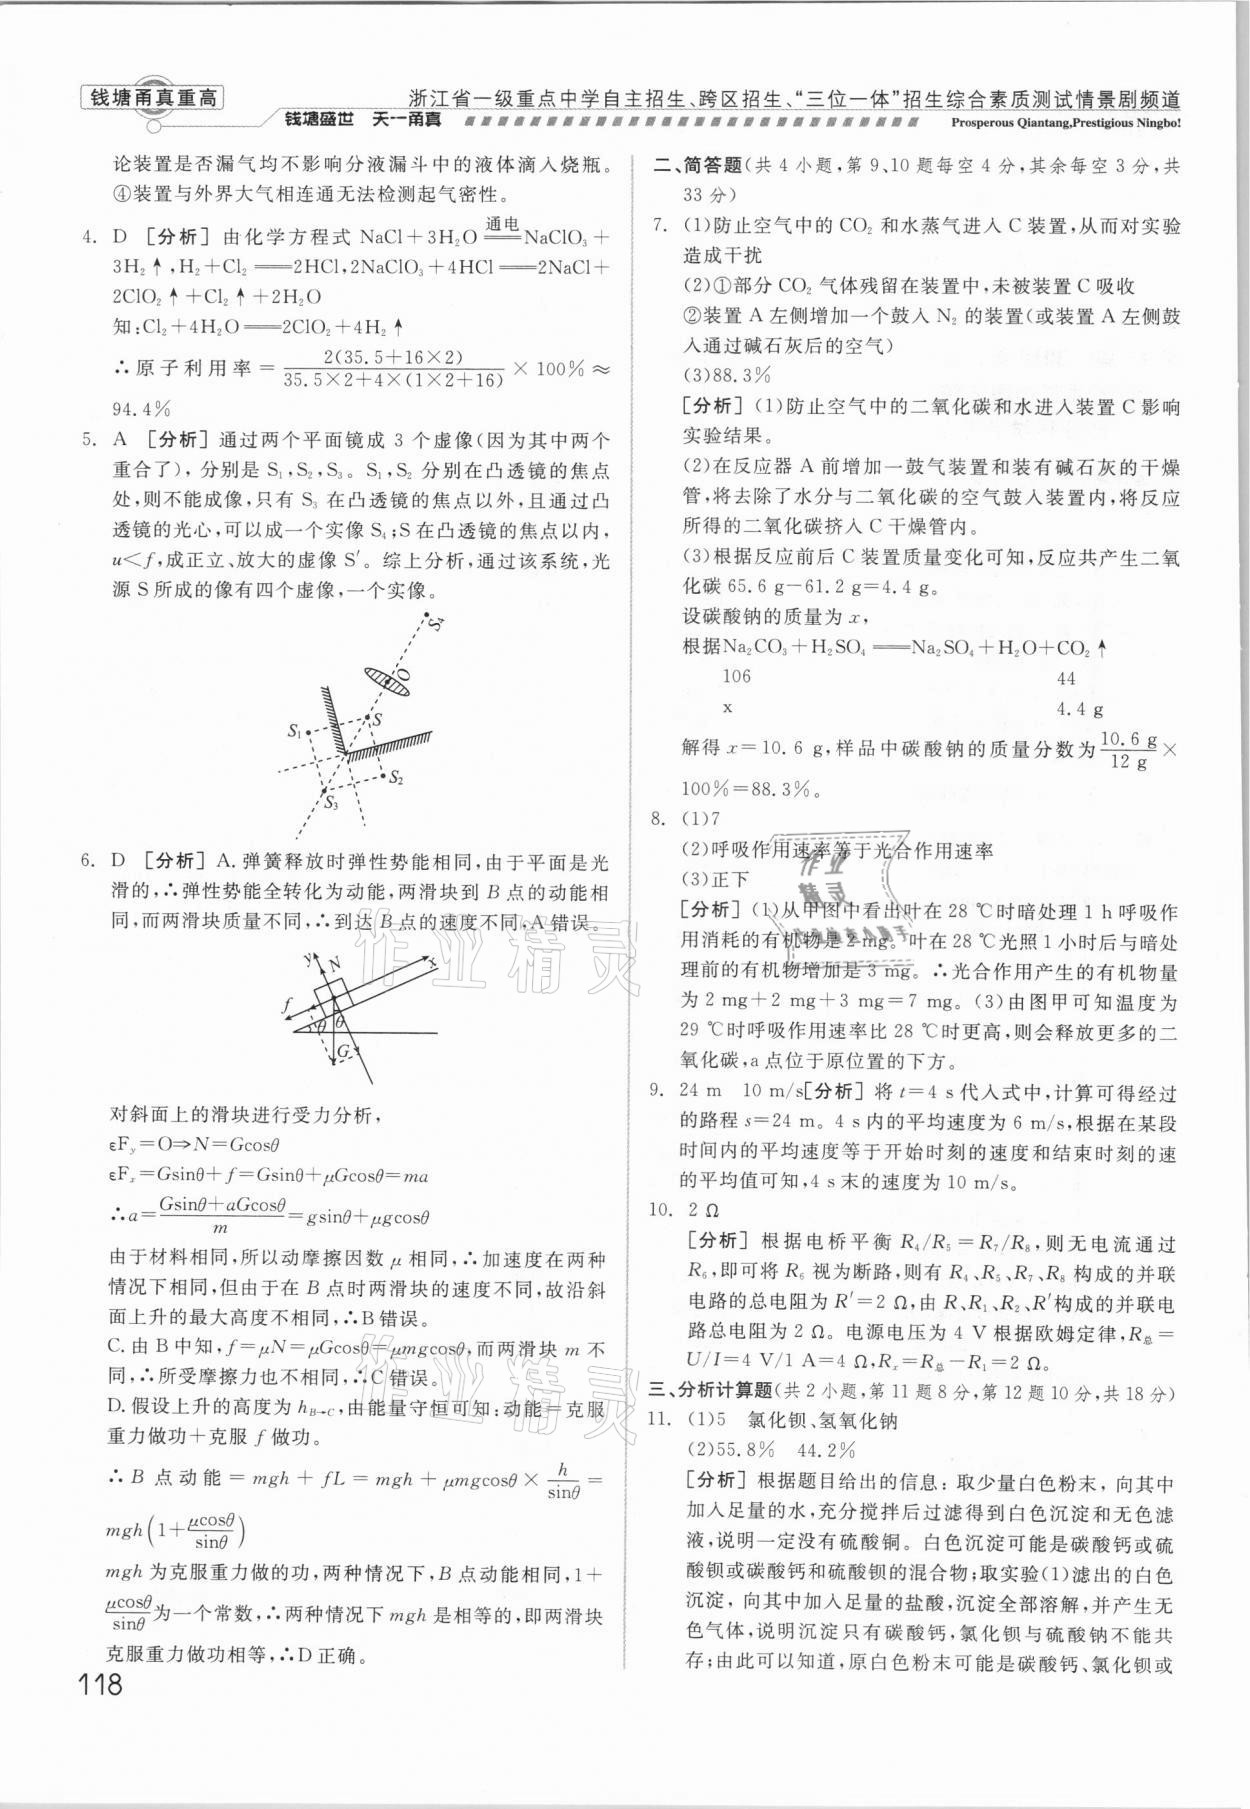 钱塘甬真重高
浙江省一级重点中学自主招生、跨区招生、“三位一体”招生综合素质测试情景剧频道
钱塘盛世 天一甬真
Prosperous Qiantang,Prestigious Ningbo!
论装置是否漏气均不影响分液漏斗中的液体滴入烧瓶。
④装置与外界大气相连通无法检测起气密性。
4. D [分析] 由化学方程式 NaCl+3H₂O =通电= NaClO₃+
3H₂↑,H₂+Cl₂══2HCl,2NaClO₃+4HCl══2NaCl+
2ClO₂↑+Cl₂↑+2H₂O
知:Cl₂+4H₂O══2ClO₂+4H₂↑
∴原子利用率= 2(35.5+16×2) / 35.5×2+4×(1×2+16) ×100%≈
94.4%
5. A [分析] 通过两个平面镜成 3 个虚像(因为其中两个
重合了), 分别是 S₁,S₂,S₃。S₁,S₂ 分别在凸透镜的焦点
处,则不能成像,只有 S₃ 在凸透镜的焦点以外,且通过凸
透镜的光心,可以成一个实像 S₄;S 在凸透镜的焦点以内,
u<f,成正立、放大的虚像 S′。综上分析,通过该系统,光
源 S 所成的像有四个虚像,一个实像。
S₄
O
S
S₁
S₂
S₃
6. D [分析] A. 弹簧释放时弹性势能相同,由于平面是光
滑的,∴弹性势能全转化为动能,两滑块到 B 点的动能相
同,而两滑块质量不同,∴到达 B 点的速度不同,A 错误。
y N x
f
θ θ
G
对斜面上的滑块进行受力分析,
εF_y=O⇒N=Gcosθ
εF_x=Gsinθ+f=Gsinθ+μGcosθ=ma
∴a= Gsinθ+aGcosθ / m =gsinθ+μgcosθ
由于材料相同,所以动摩擦因数 μ 相同,∴加速度在两种
情况下相同,但由于在 B 点时两滑块的速度不同,故沿斜
面上升的最大高度不相同,∴B 错误。
C. 由 B 中知,f=μN=μGcosθ=μmgcosθ,而两滑块 m 不
同,∴所受摩擦力也不相同,∴C 错误。
D. 假设上升的高度为 h_B→C,由能量守恒可知:动能=克服
重力做功+克服 f 做功。
∴B 点动能=mgh+fL=mgh+μmgcosθ× h / sinθ =
mgh(1+ μcosθ / sinθ )
mgh 为克服重力做的功,两种情况下,B 点动能相同,1+
μcosθ / sinθ 为一个常数,∴两种情况下 mgh 是相等的,即两滑块
克服重力做功相等,∴D 正确。
118
二、简答题(共 4 小题,第 9、10 题每空 4 分,其余每空 3 分,共
33 分)
7. (1)防止空气中的 CO₂ 和水蒸气进入 C 装置,从而对实验
造成干扰
(2)①部分 CO₂ 气体残留在装置中,未被装置 C 吸收
②装置 A 左侧增加一个鼓入 N₂ 的装置(或装置 A 左侧鼓
入通过碱石灰后的空气)
(3)88.3%
[分析] (1)防止空气中的二氧化碳和水进入装置 C 影响
实验结果。
(2)在反应器 A 前增加一鼓气装置和装有碱石灰的干燥
管,将去除了水分与二氧化碳的空气鼓入装置内,将反应
所得的二氧化碳挤入 C 干燥管内。
(3)根据反应前后 C 装置质量变化可知,反应共产生二氧
化碳 65.6 g−61.2 g=4.4 g。
设碳酸钠的质量为 x,
根据Na₂CO₃+H₂SO₄══Na₂SO₄+H₂O+CO₂↑
106 44
x 4.4 g
解得 x=10.6 g,样品中碳酸钠的质量分数为 10.6 g / 12 g ×
100%=88.3%。
8. (1)7
(2)呼吸作用速率等于光合作用速率
(3)正下
[分析] (1)从甲图中看出叶在 28 ℃时暗处理 1 h 呼吸作
用消耗的有机物是 2 mg。叶在 28 ℃光照 1 小时后与暗处
理前的有机物增加是 3 mg。∴光合作用产生的有机物量
为 2 mg+2 mg+3 mg=7 mg。(3)由图甲可知温度为
29 ℃时呼吸作用速率比 28 ℃时更高,则会释放更多的二
氧化碳,a 点位于原位置的下方。
9. 24 m 10 m/s[分析] 将 t=4 s 代入式中,计算可得经过
的路程 s=24 m。4 s 内的平均速度为 6 m/s,根据在某段
时间内的平均速度等于开始时刻的速度和结束时刻的速
的平均值可知,4 s 末的速度为 10 m/s。
10. 2 Ω
[分析] 根据电桥平衡 R₄/R₅=R₇/R₈,则无电流通过
R₆,即可将 R₆ 视为断路,则有 R₄、R₅、R₇、R₈ 构成的并联
电路的总电阻为 R′=2 Ω,由 R、R₁、R₂、R′构成的并联电
路总电阻为 2 Ω。电源电压为 4 V 根据欧姆定律,R总=
U/I=4 V/1 A=4 Ω,Rₓ=R总−R₁=2 Ω。
三、分析计算题(共 2 小题,第 11 题 8 分,第 12 题 10 分,共 18 分)
11. (1)5 氯化钡、氢氧化钠
(2)55.8% 44.2%
[分析] 根据题目给出的信息: 取少量白色粉末, 向其中
加入足量的水,充分搅拌后过滤得到白色沉淀和无色滤
液,说明一定没有硫酸铜。白色沉淀可能是碳酸钙或硫
酸钡或碳酸钙和硫酸钡的混合物;取实验(1)滤出的白色
沉淀, 向其中加入足量的盐酸,沉淀全部溶解,并产生无
色气体,说明沉淀只有碳酸钙,氯化钡与硫酸钠不能共
存;由此可以知道,原白色粉末可能是碳酸钙、氯化钡或
作业精灵
作业精灵
作业
精灵